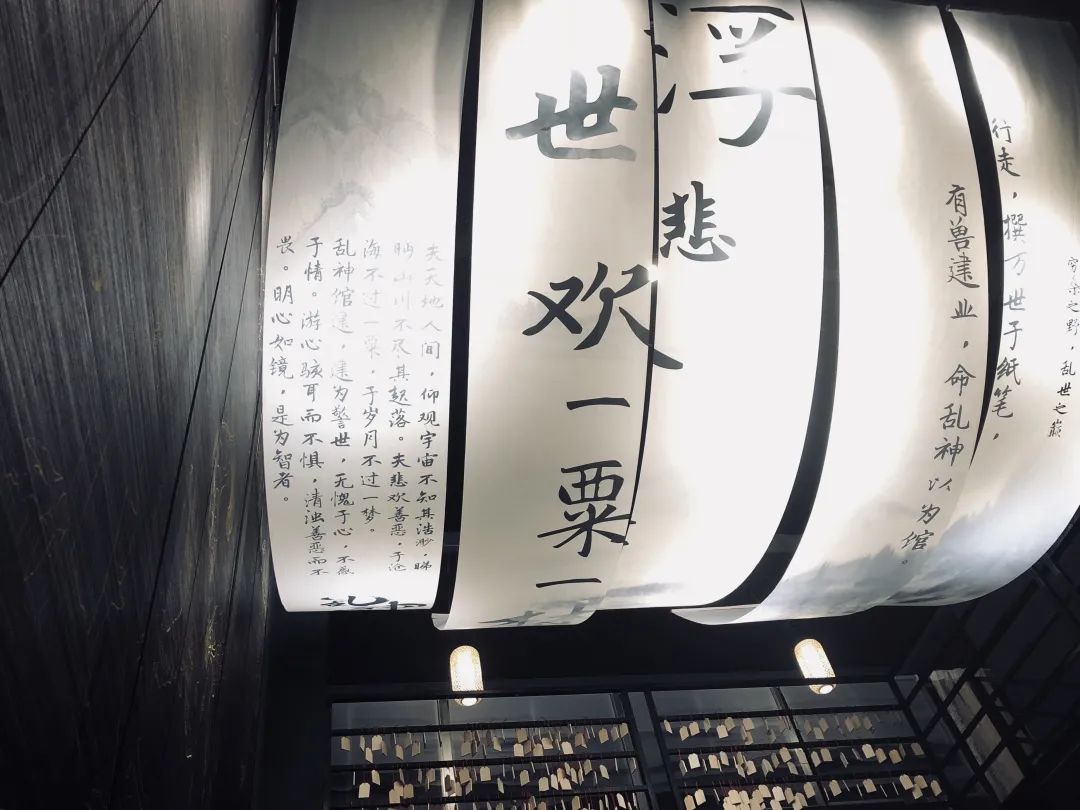 之野，乱世之巅
行走，撰万世于纸笔，
有兽建业，命乱神以为馆。
浮悲
世欢一粟一
夫天地人间，仰观宇宙不知其浩渺，睇
眄山川不尽其起落。夫悲欢善恶，于沧
海不过一粟，于岁月不过一梦。
乱神馆建，建为警世，无愧于心，不
于情。游心骇耳而不惧，清浊善恶而不
畏。明心如镜，是为智者。
乱